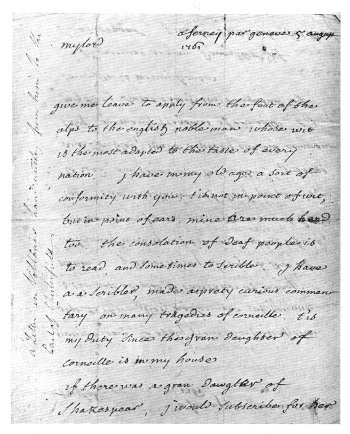 a ferney par geneva 5 augup
mylord
1761
give me leave to apply from the foot of the
alps to the english noble man whose wit
is the most adapted to the taste of every
nation. j have in my old age a sort of
conformity with you. t'is not in point of wit,
but in point of ears. mine are much hard
too. the consolation of deaf people is
to read, and sometimes to scribble. j have
a a scribler, made a prety curious commen
tary on many tragedies of corneille t'is
my duty since the gran daughter of
corneille is in my house
if there was a gran dawgther of
Shakespear, j would subscribe for her
a letter in Voltaire's hand writer, from him to the
Earl of Chesterfield